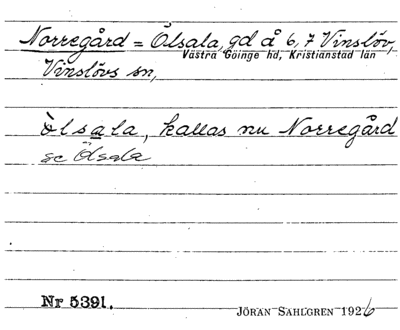 Norregård = Ölsala, gd å 6, 7 Vinslöv,
Västra Göinge hd, Kristianstad län
Vinslövs sn,
ö̀lsala, kallas nu Norregård
se Ölsala
Nr 5391.
JÖRAN SAHLGREN 1926